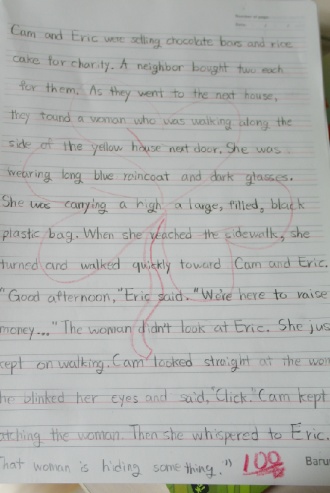 Cam and Eric were selling chocolate bars and rice
cake for charity. A neighbor bought two each
for them. As they went to the next house,
they found a woman who was walking along the
side of the yellow house next door. She was
wearing long blue raincoat and dark glasses.
She was carrying a high a large, filled, black
plastic bag. When she reached the sidewalk, she
turned and walked quickly toward Cam and Eric.
"Good afternoon," Eric said. "We're here to raise
money..." The woman didn't look at Eric. She jus
kept on walking. Cam looked straight at the wom
he blinked her eyes and said, "Click." Cam kept
atching the woman. Then she whispered to Eric.
That woman is hiding something." 100
Baru